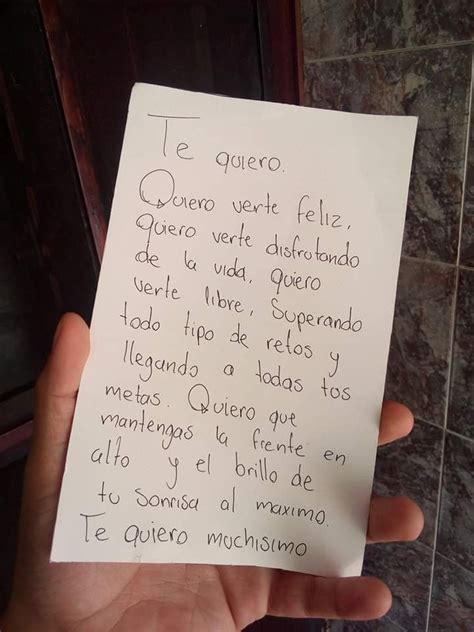 Te quiero.
Quiero verte feliz,
quiero verte disfrutando
de la vida, quiero
verte libre, Superando
todo tipo de retos y
llegando a todas tus
metas. Quiero que
mantengas la frente en
alto y el brillo de
tu sonrisa al maximo.
Te quiero muchisimo